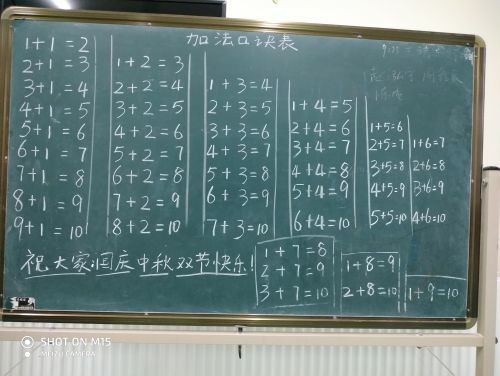 加法口诀表
1+1=2
2+1=3
3+1=4
4+1=5
5+1=6
6+1=7
7+1=8
8+1=9
9+1=10
1+2=3
2+2=4
3+2=5
4+2=6
5+2=7
6+2=8
7+2=9
8+2=10
1+3=4
2+3=5
3+3=6
4+3=7
5+3=8
6+3=9
7+3=10
1+4=5
2+4=6
3+4=7
4+4=8
5+4=9
6+4=10
1+5=6
2+5=7
3+5=8
4+5=9
5+5=10
1+6=7
2+6=8
3+6=9
4+6=10
1+7=8
2+7=9
3+7=10
1+8=9
2+8=10
1+9=10
祝大家:国庆中秋双节快乐!
SHOT ON M15
MEIZU CAMERA